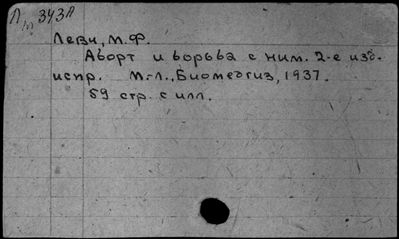 Леви, М.Ф.
Аборт и борьба с ним. 2-е изд.
испр. М.-Л., Биомедгиз, 1937.
59 стр. с илл.